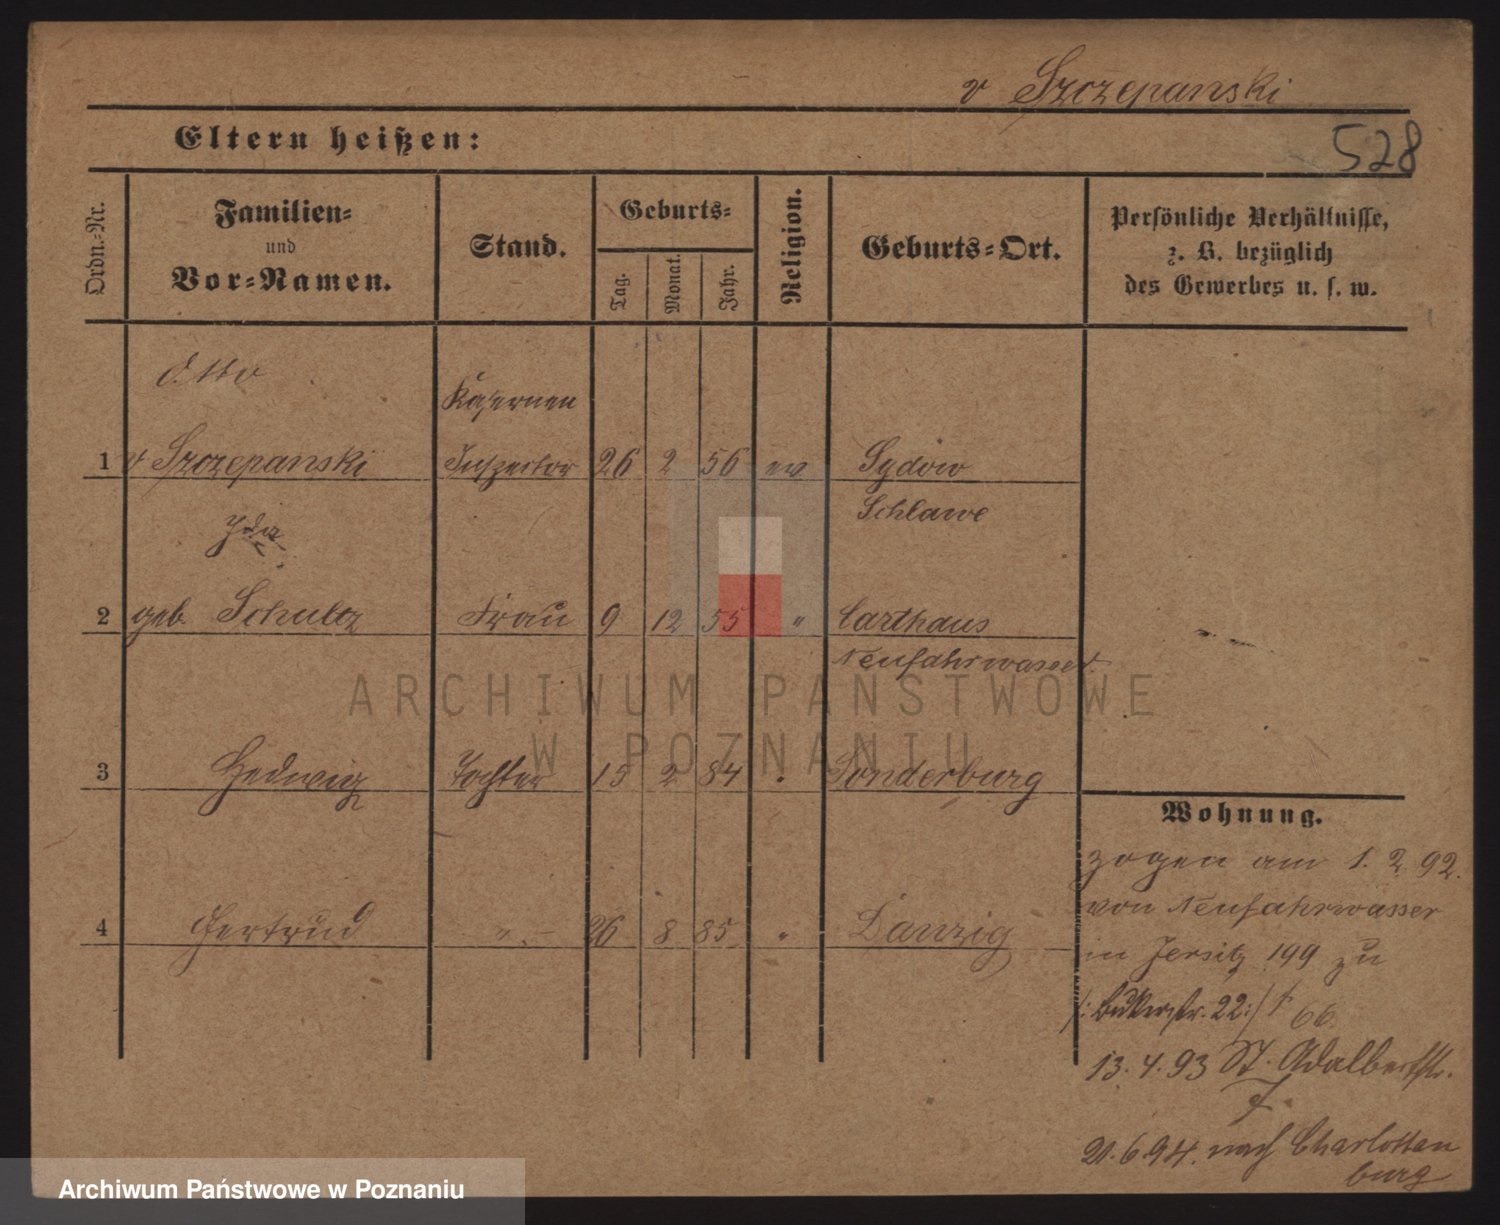 v Szczepanski
Eltern heißen:
528
Ordn.-Nr.
Familien-
und
Vor-Namen.
Stand.
Geburts-
Tag.
Monat.
Jahr.
Religion.
Geburts-Ort.
Persönliche Verhältnisse,
z. B. bezüglich
des Gewerbes u. s. w.
Otto
Kasernen
1 v Szczepanski Inspector 26 2 56 ev Sydow
Schlawe
Ida
2 geb. Schultz Frau 9 12 55 " Carthaus
Neufahrwasser
ARCHIWUM PAŃSTWOWE
W POZNANIU
3 Hedwig Tochter 15 2 84 " Sonderburg
Wohnung.
zogen am 1. 2. 92.
von Neufahrwasser
4 Gertrud " 26 8 85 " Danzig
in Jersitz 199 zu
/: Bukerstr. 22 :/ 66
13. 4. 93 St. Adalbertstr.
7.
21. 6. 94. nach Charlotten
burg
Archiwum Państwowe w Poznaniu